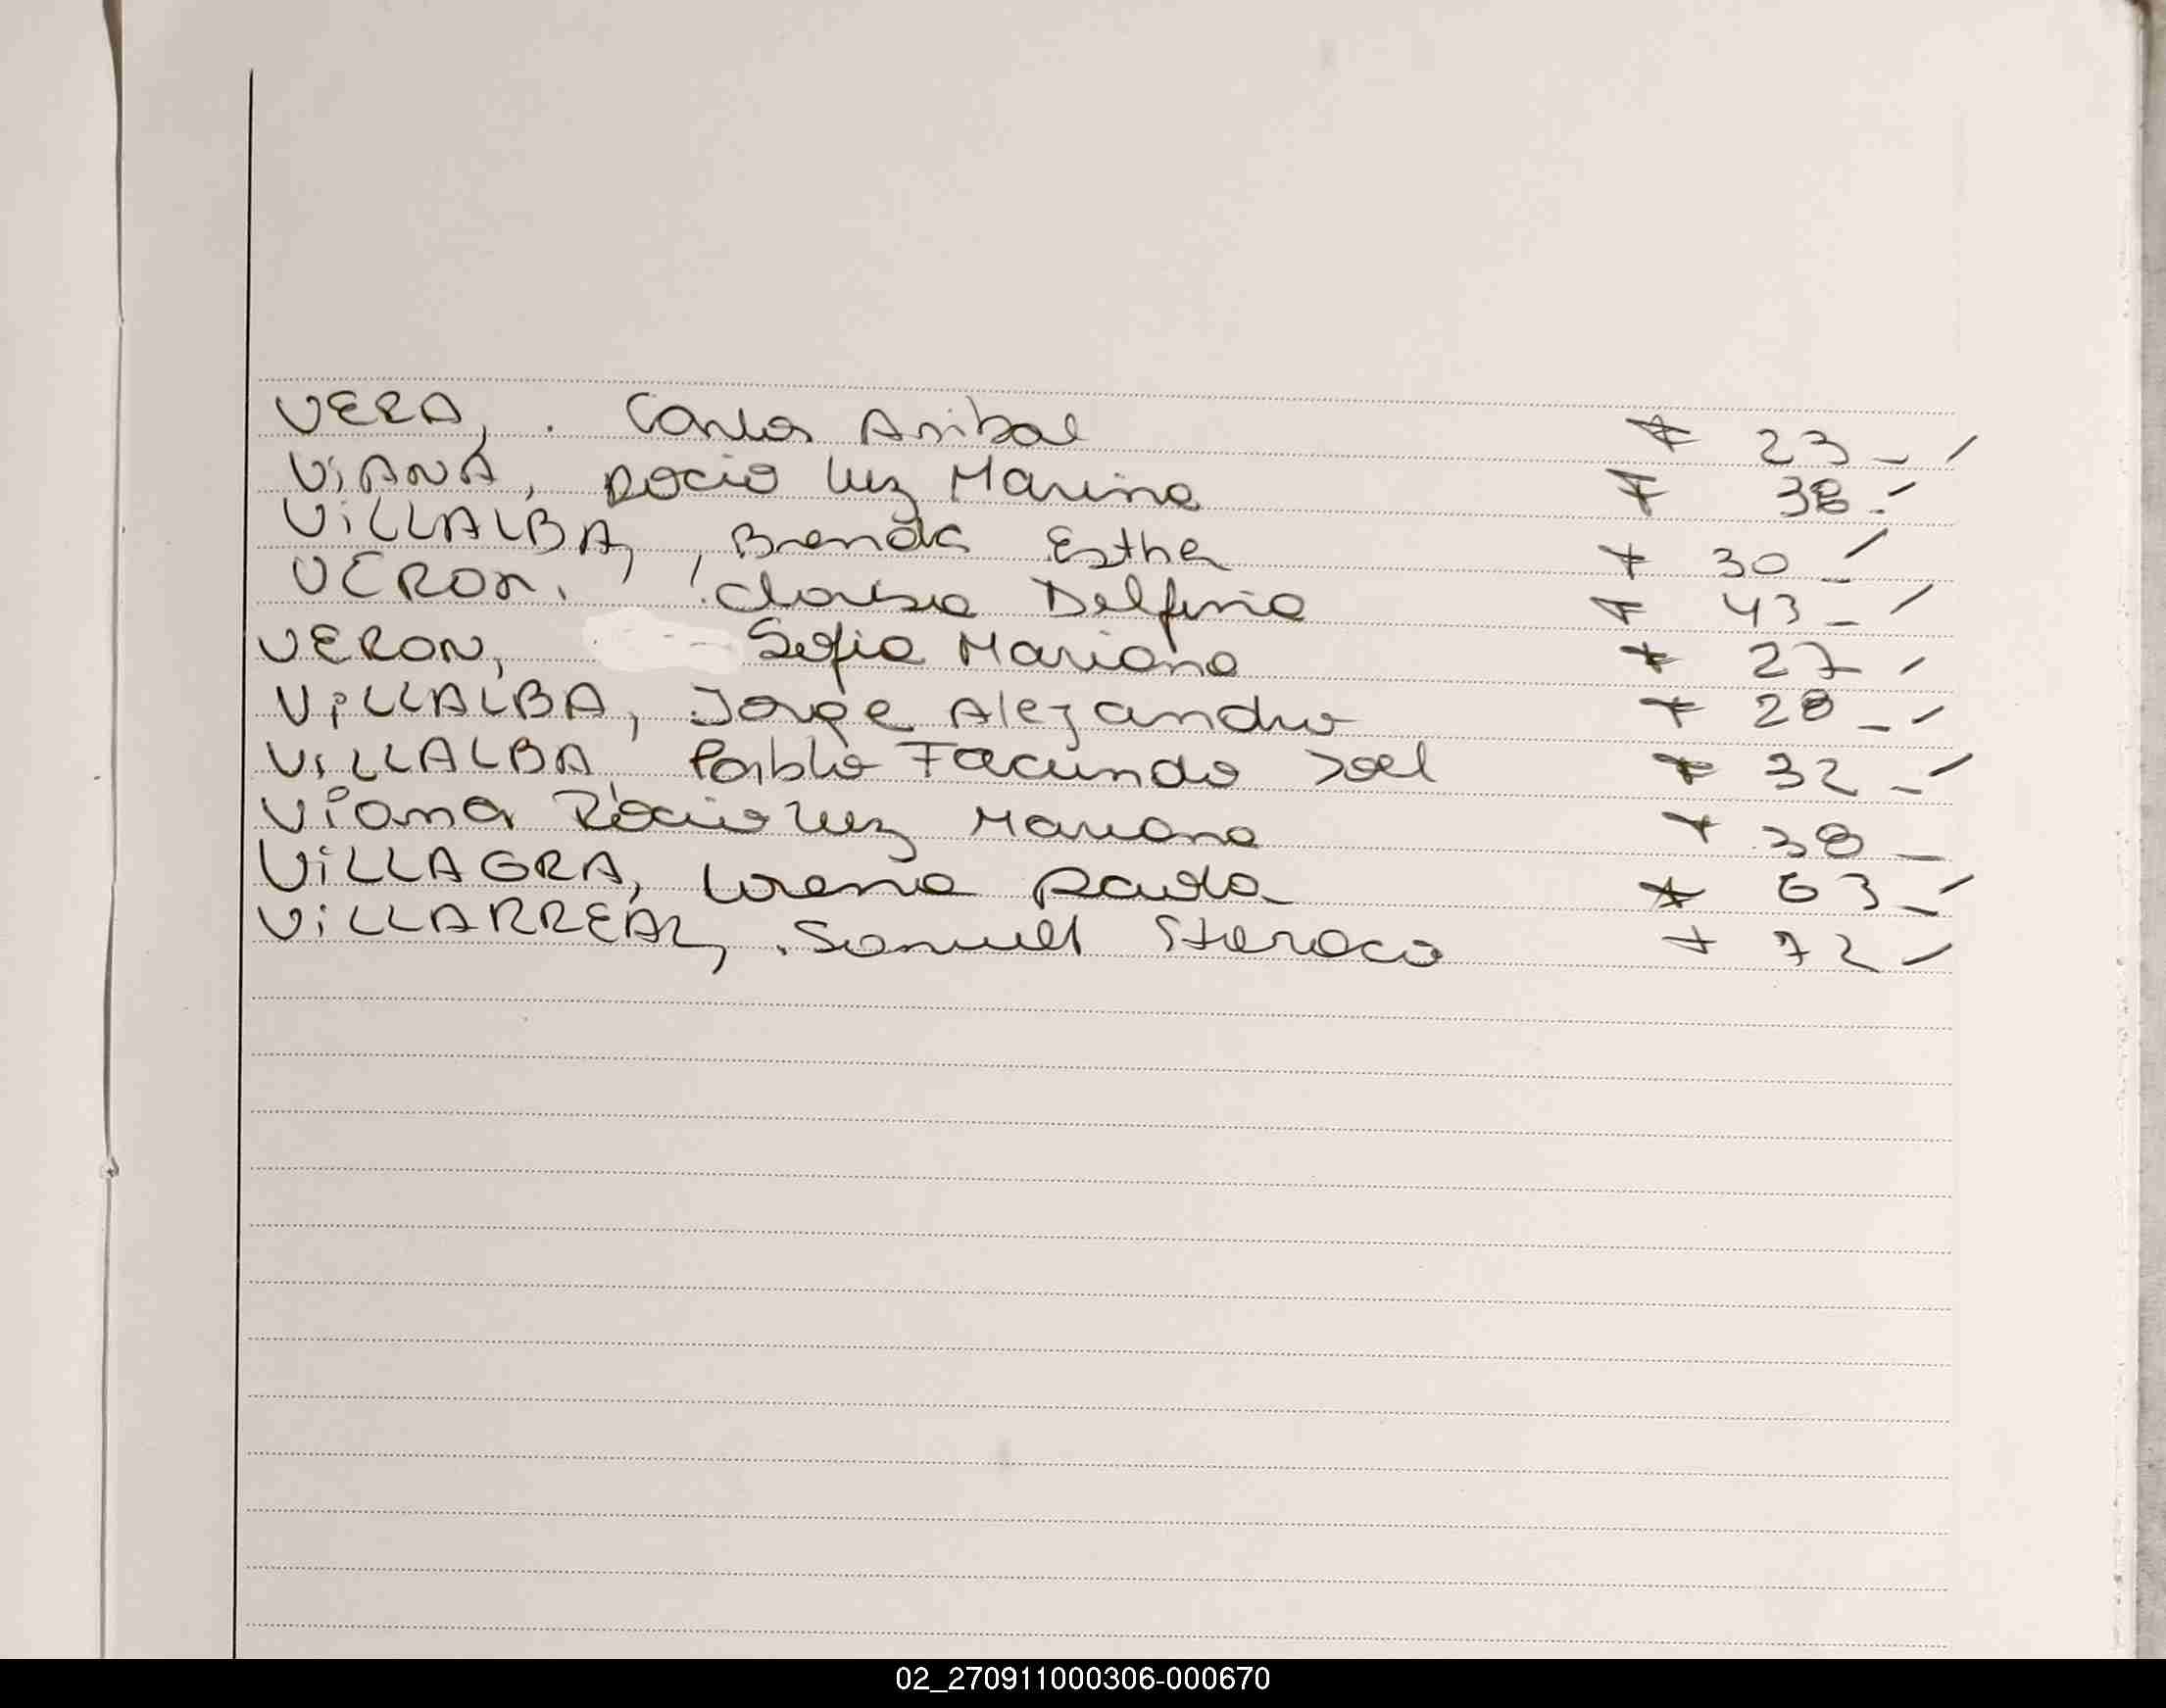 VERA, . Carlos Anibal * 23 - /
ViANA, Rocio Luz Marina F 38 - /
ViLLALBA, , Brenda Esther + 30 - /
VERON, Clarisa Delfina F 43 - /
VERON, Sofia Mariana * 27 - /
ViLLALBA, Jorge Alejandro + 28 - /
ViLLALBA, Pablo Facundo Joel * 32 - /
Viana Rocio Luz Mariana + 38 -
ViLLAGRA, Lorena Paola * 63 - /
ViLLARREAL, . Samuel + 72 /
02_270911000306-000670